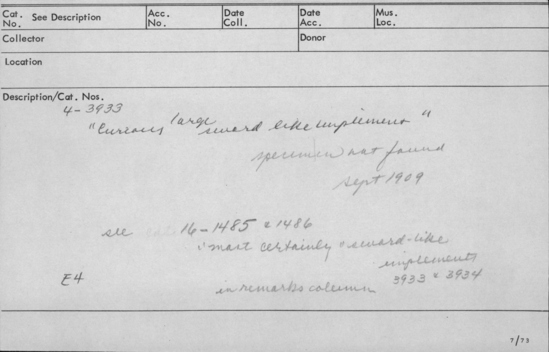 Cat. No. See Description
Acc. No.
Date Coll.
Date Acc.
Mus. Loc.
Collector
Donor
Location
Description/Cat. Nos.
4-3933
"Curious large sword like implement"
specimen not found
sept 1909
see 16-1485 & 1486
"most certainly sword-like
implements
3933 & 3934
in remarks column
E4
7/73